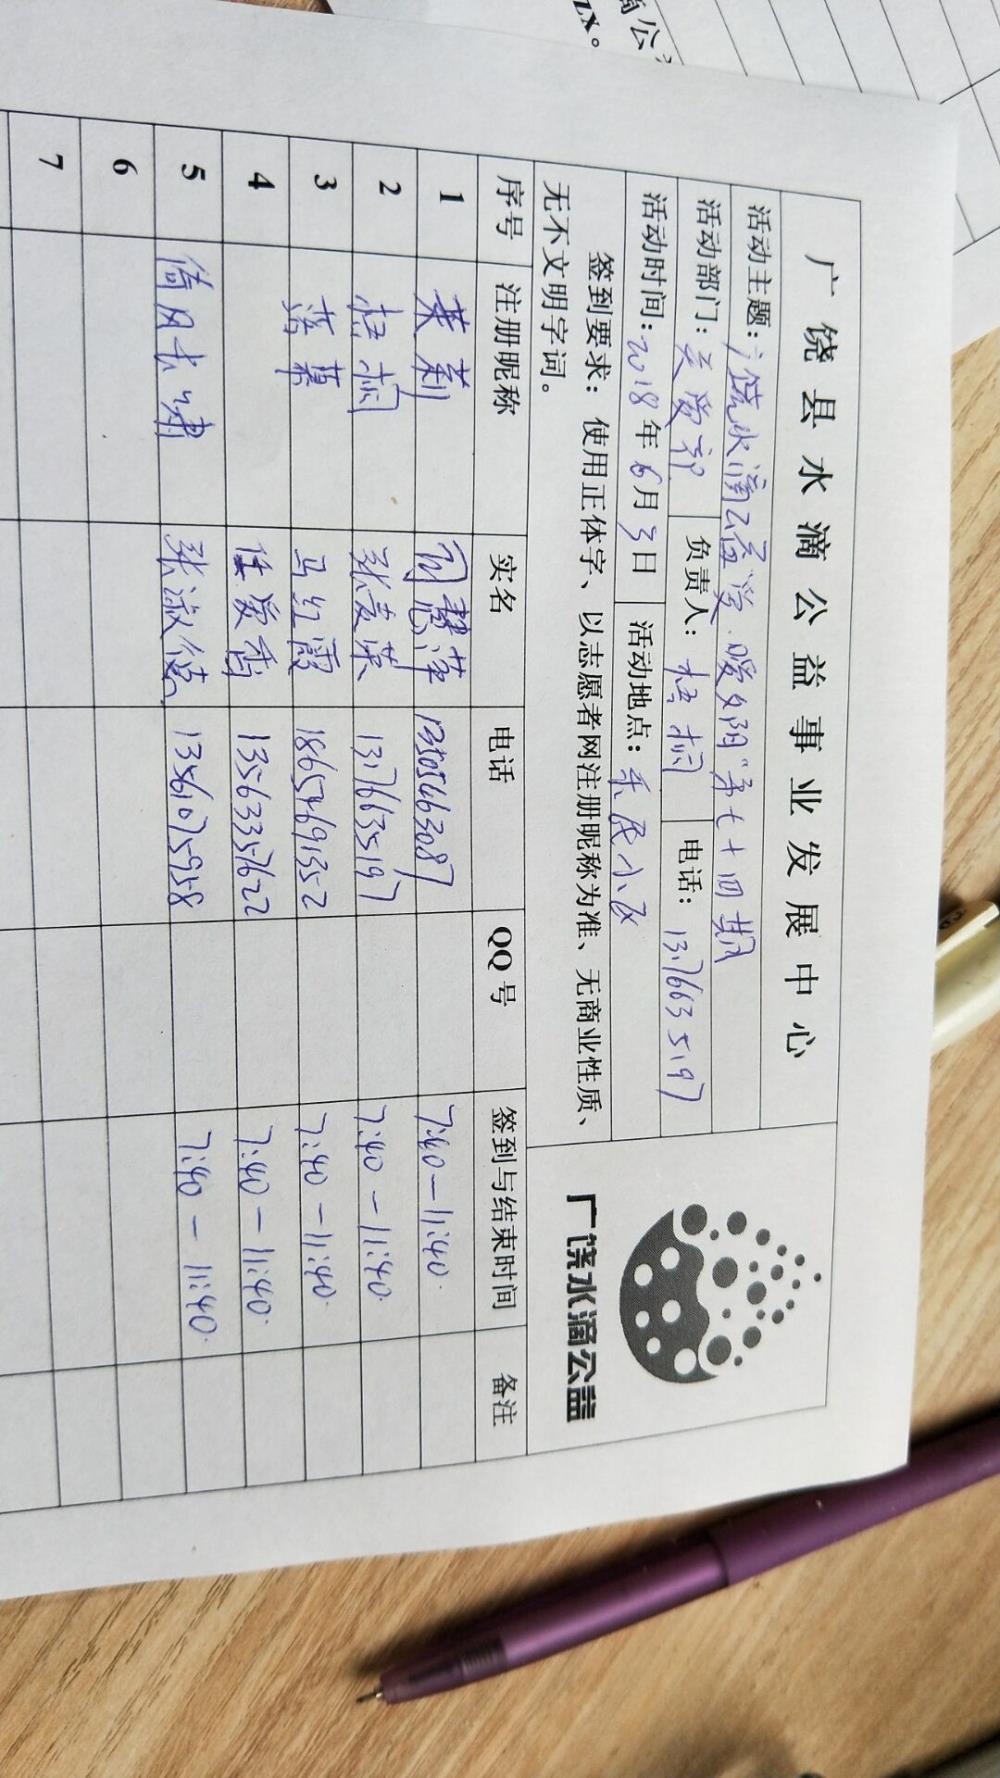 滴公
ZX。
广饶县水滴公益事业发展中心
活动主题：广饶水滴公益爱·暖夕阳"第七十四期
活动部门：关爱部 负责人：梧桐 电话：13176635197
活动时间：2018年6月3日 活动地点：乐民小区
签到要求：使用正体字、以志愿者网注册昵称为准、无商业性质、
无不文明字词。
广饶水滴公益
序号 注册昵称 实名 电话 QQ号 签到与结束时间 备注
1 茉莉 13505463087 7:40—11:40
2 梧桐 13176635197 7:40—11:40
3 马红霞 18654691352 7:40—11:40
4 任爱香 13563357622 7:40—11:40
5 倚风长啸 张淑德 13561075958 7:40—11:40
6
7